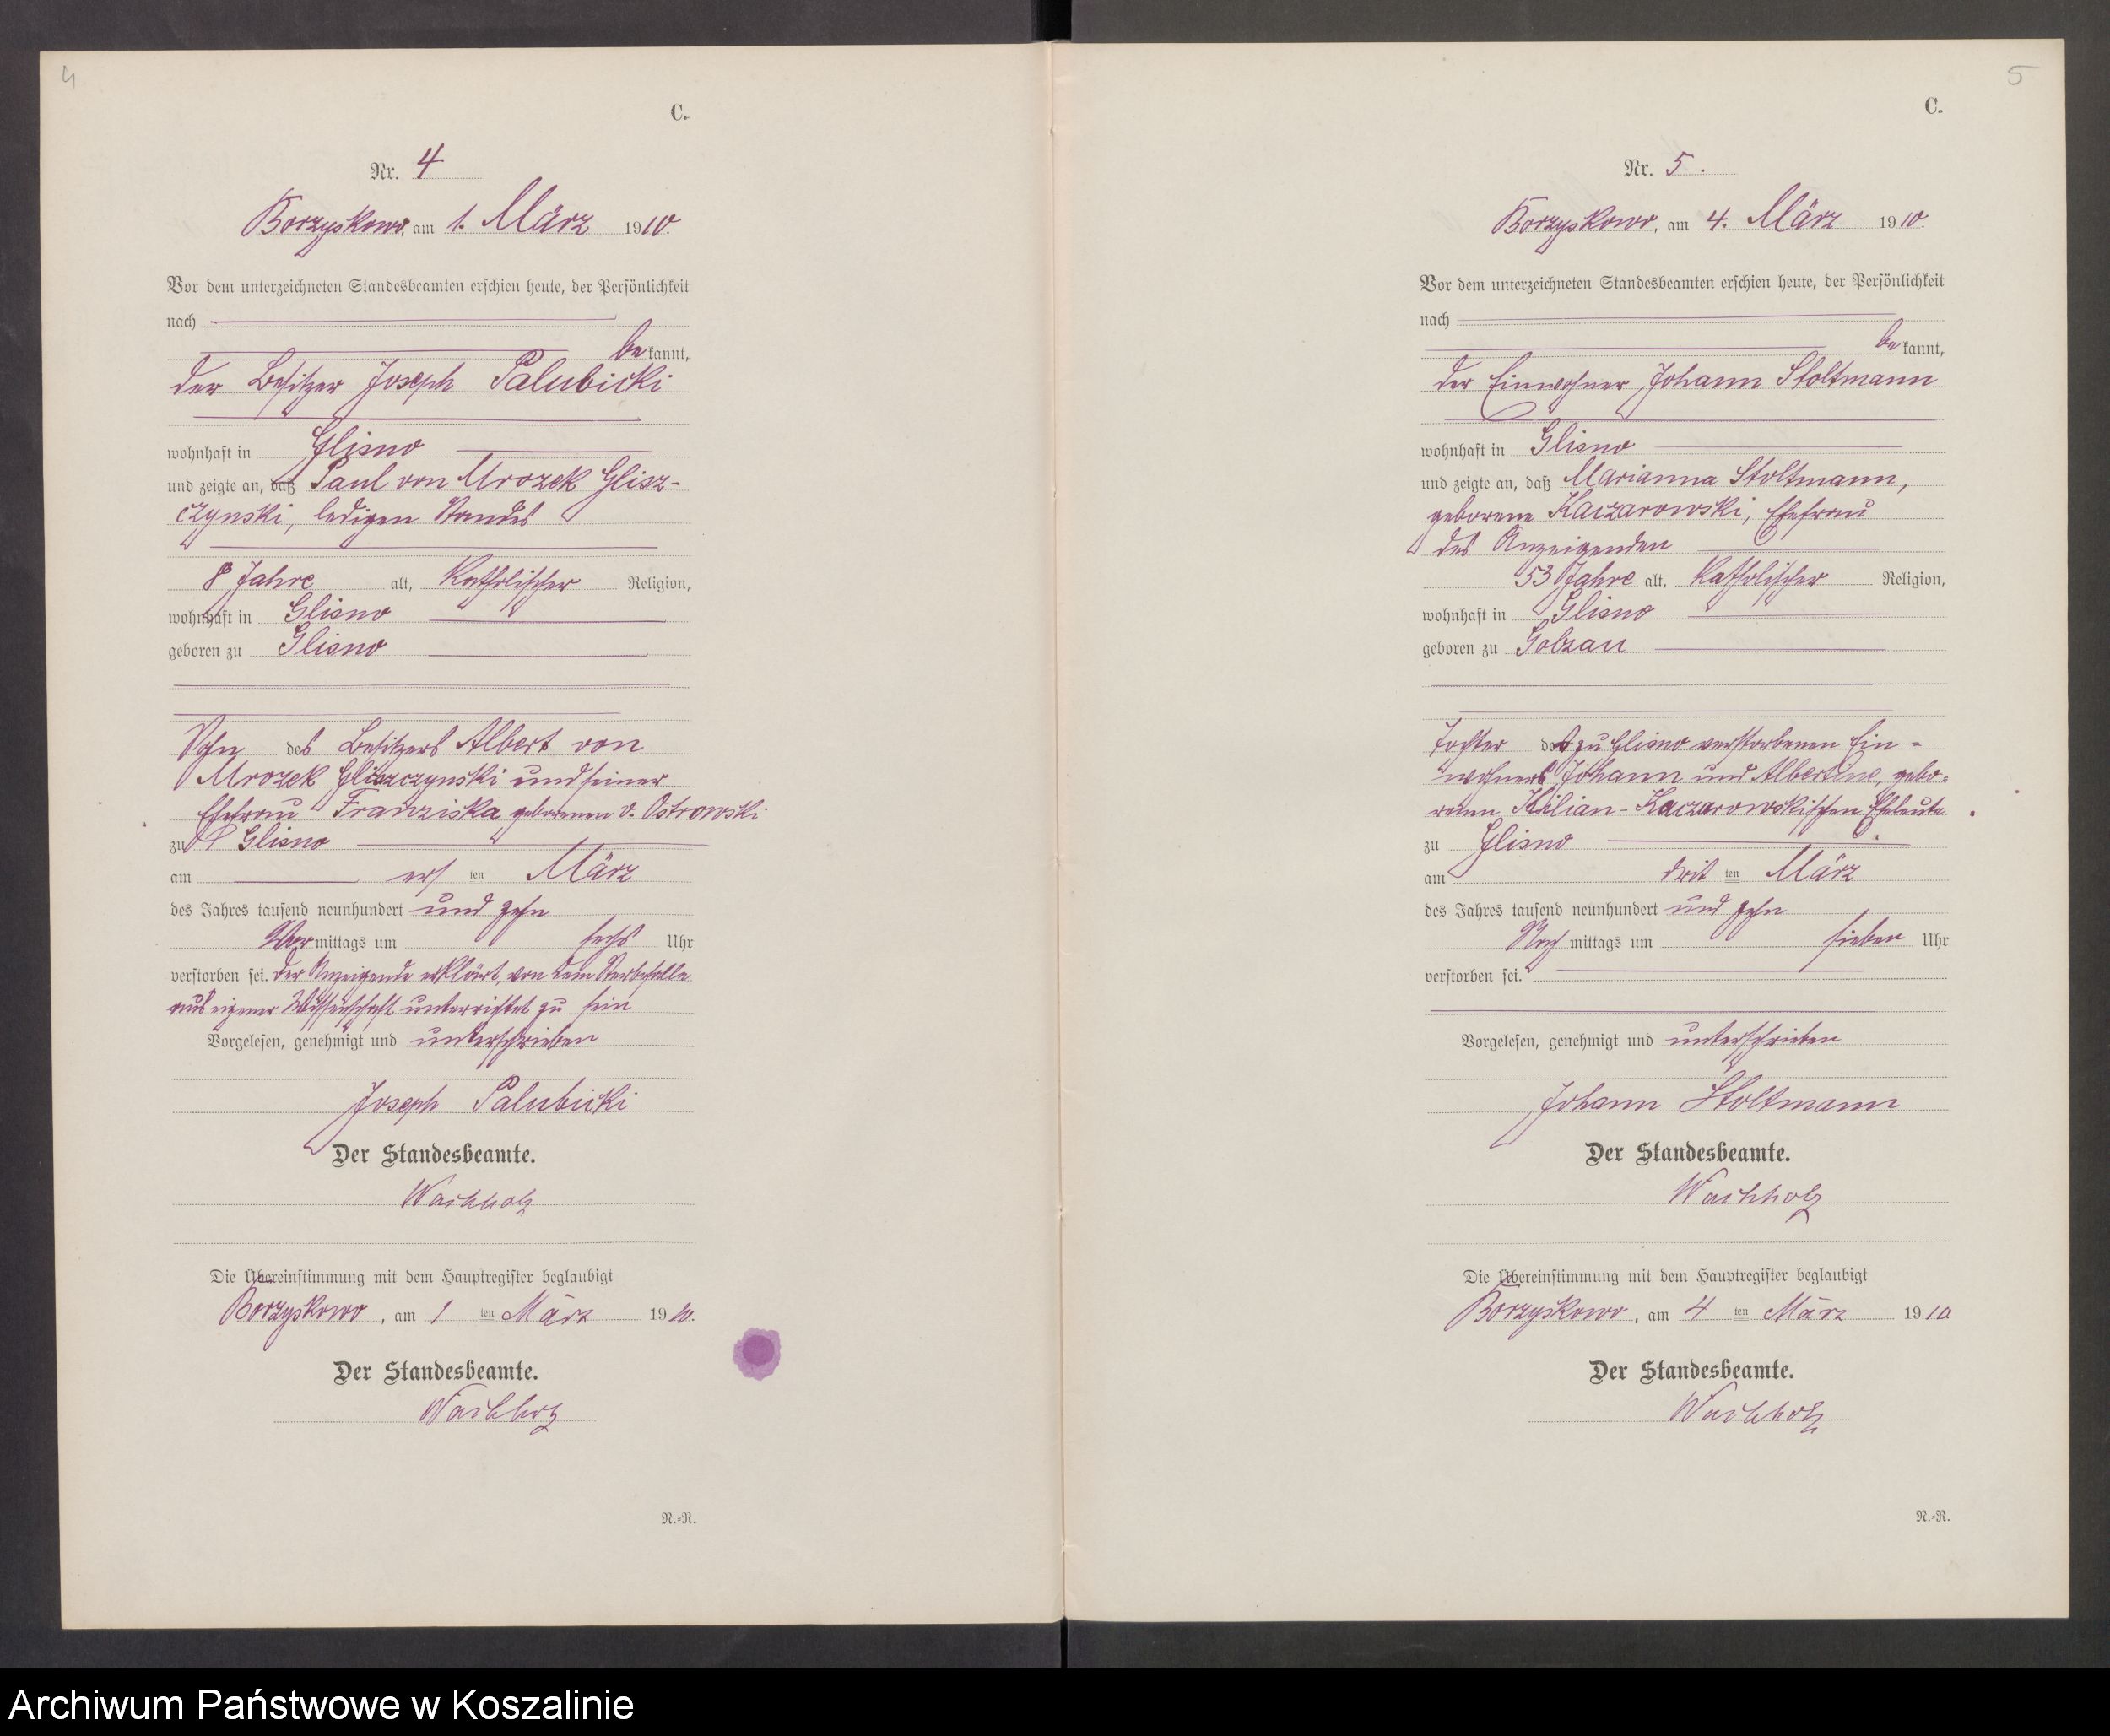 4
C.
Nr. 4
Borzyskowo, am 1. März 1910.
Vor dem unterzeichneten Standesbeamten erschien heute, der Persönlichkeit
nach
be kannt,
der Besitzer Joseph Palubicki
wohnhaft in Glisno
und zeigte an, daß Paul von Mrozek Glisz-
czynski, ledigen Standes
8 Jahre alt, katholischer Religion,
wohnhaft in Glisno
geboren zu Glisno
Sohn des Besitzers Albert von
Mrozek Gliszczynski und seiner
Ehefrau Franziska geborenen v. Ostrowski
zu Glisno
am erst ten März
des Jahres tausend neunhundert und zehn
Vor mittags um sechs Uhr
verstorben sei. Der Anzeigende erklärt, von dem Sterbefalle
aus eigener Wissenschaft unterrichtet zu sein
Vorgelesen, genehmigt und unterschrieben
Joseph Palubicki
Der Standesbeamte.
Wachholz
Die Übereinstimmung mit dem Hauptregister beglaubigt
Borzyskowo, am 1 ten März 1910.
Der Standesbeamte.
Wachholz
N.-R.
5
C.
Nr. 5.
Borzyskowo, am 4. März 1910.
Vor dem unterzeichneten Standesbeamten erschien heute, der Persönlichkeit
nach
be kannt,
der Einwohner Johann Stoltmann
wohnhaft in Glisno
und zeigte an, daß Marianna Stoltmann,
geborene Kaczarowski, Ehefrau
des Anzeigenden
53 Jahre alt, katholischer Religion,
wohnhaft in Glisno
geboren zu Golzau
Tochter der zu Glisno verstorbenen Ein-
wohners Johann und Albertine, gebo-
renen Kilian-Kaczarowskischen Eheleute
zu Glisno
am drit ten März
des Jahres tausend neunhundert und zehn
Nach mittags um sieben Uhr
verstorben sei.
Vorgelesen, genehmigt und unterschrieben
Johann Stoltmann
Der Standesbeamte.
Wachholz
Die Übereinstimmung mit dem Hauptregister beglaubigt
Borzyskowo, am 4 ten März 1910
Der Standesbeamte.
Wachholz
N.-R.
Archiwum Państwowe w Koszalinie